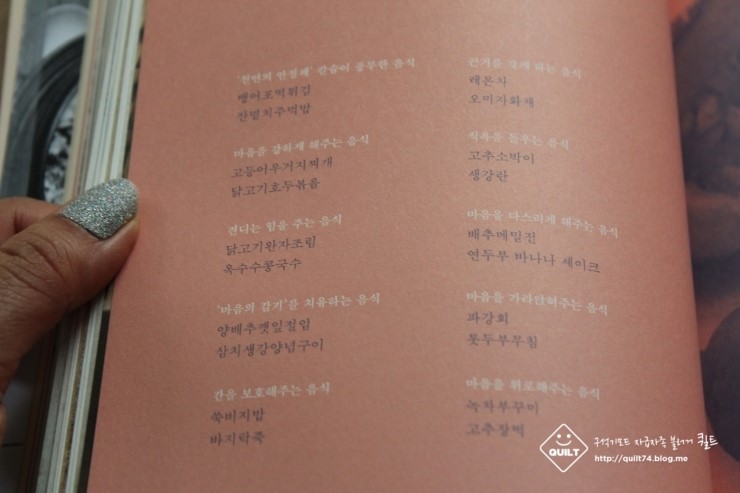 '천연의 안정제' 칼슘이 풍부한 음식
뱅어포떡튀김
잔멸치주먹밥
마음을 강하게 해주는 음식
고등어우거지찌개
닭고기호두볶음
견디는 힘을 주는 음식
닭고기완자조림
옥수수콩국수
'마음의 감기'를 치유하는 음식
양배추깻잎절임
삼치생강양념구이
간을 보호해주는 음식
쑥비지밥
바지락죽
끈기를 갖게 하는 음식
레몬차
오미자화채
식욕을 돋우는 음식
고추소박이
생강란
마음을 다스리게 해주는 음식
배추메밀전
연두부 바나나 셰이크
마음을 가라앉혀주는 음식
파강회
톳두부무침
마음을 위로해주는 음식
녹차부꾸미
고추장떡
QUILT
구석기모드 자급자족 블로거 퀼트
http://quilt74.blog.me